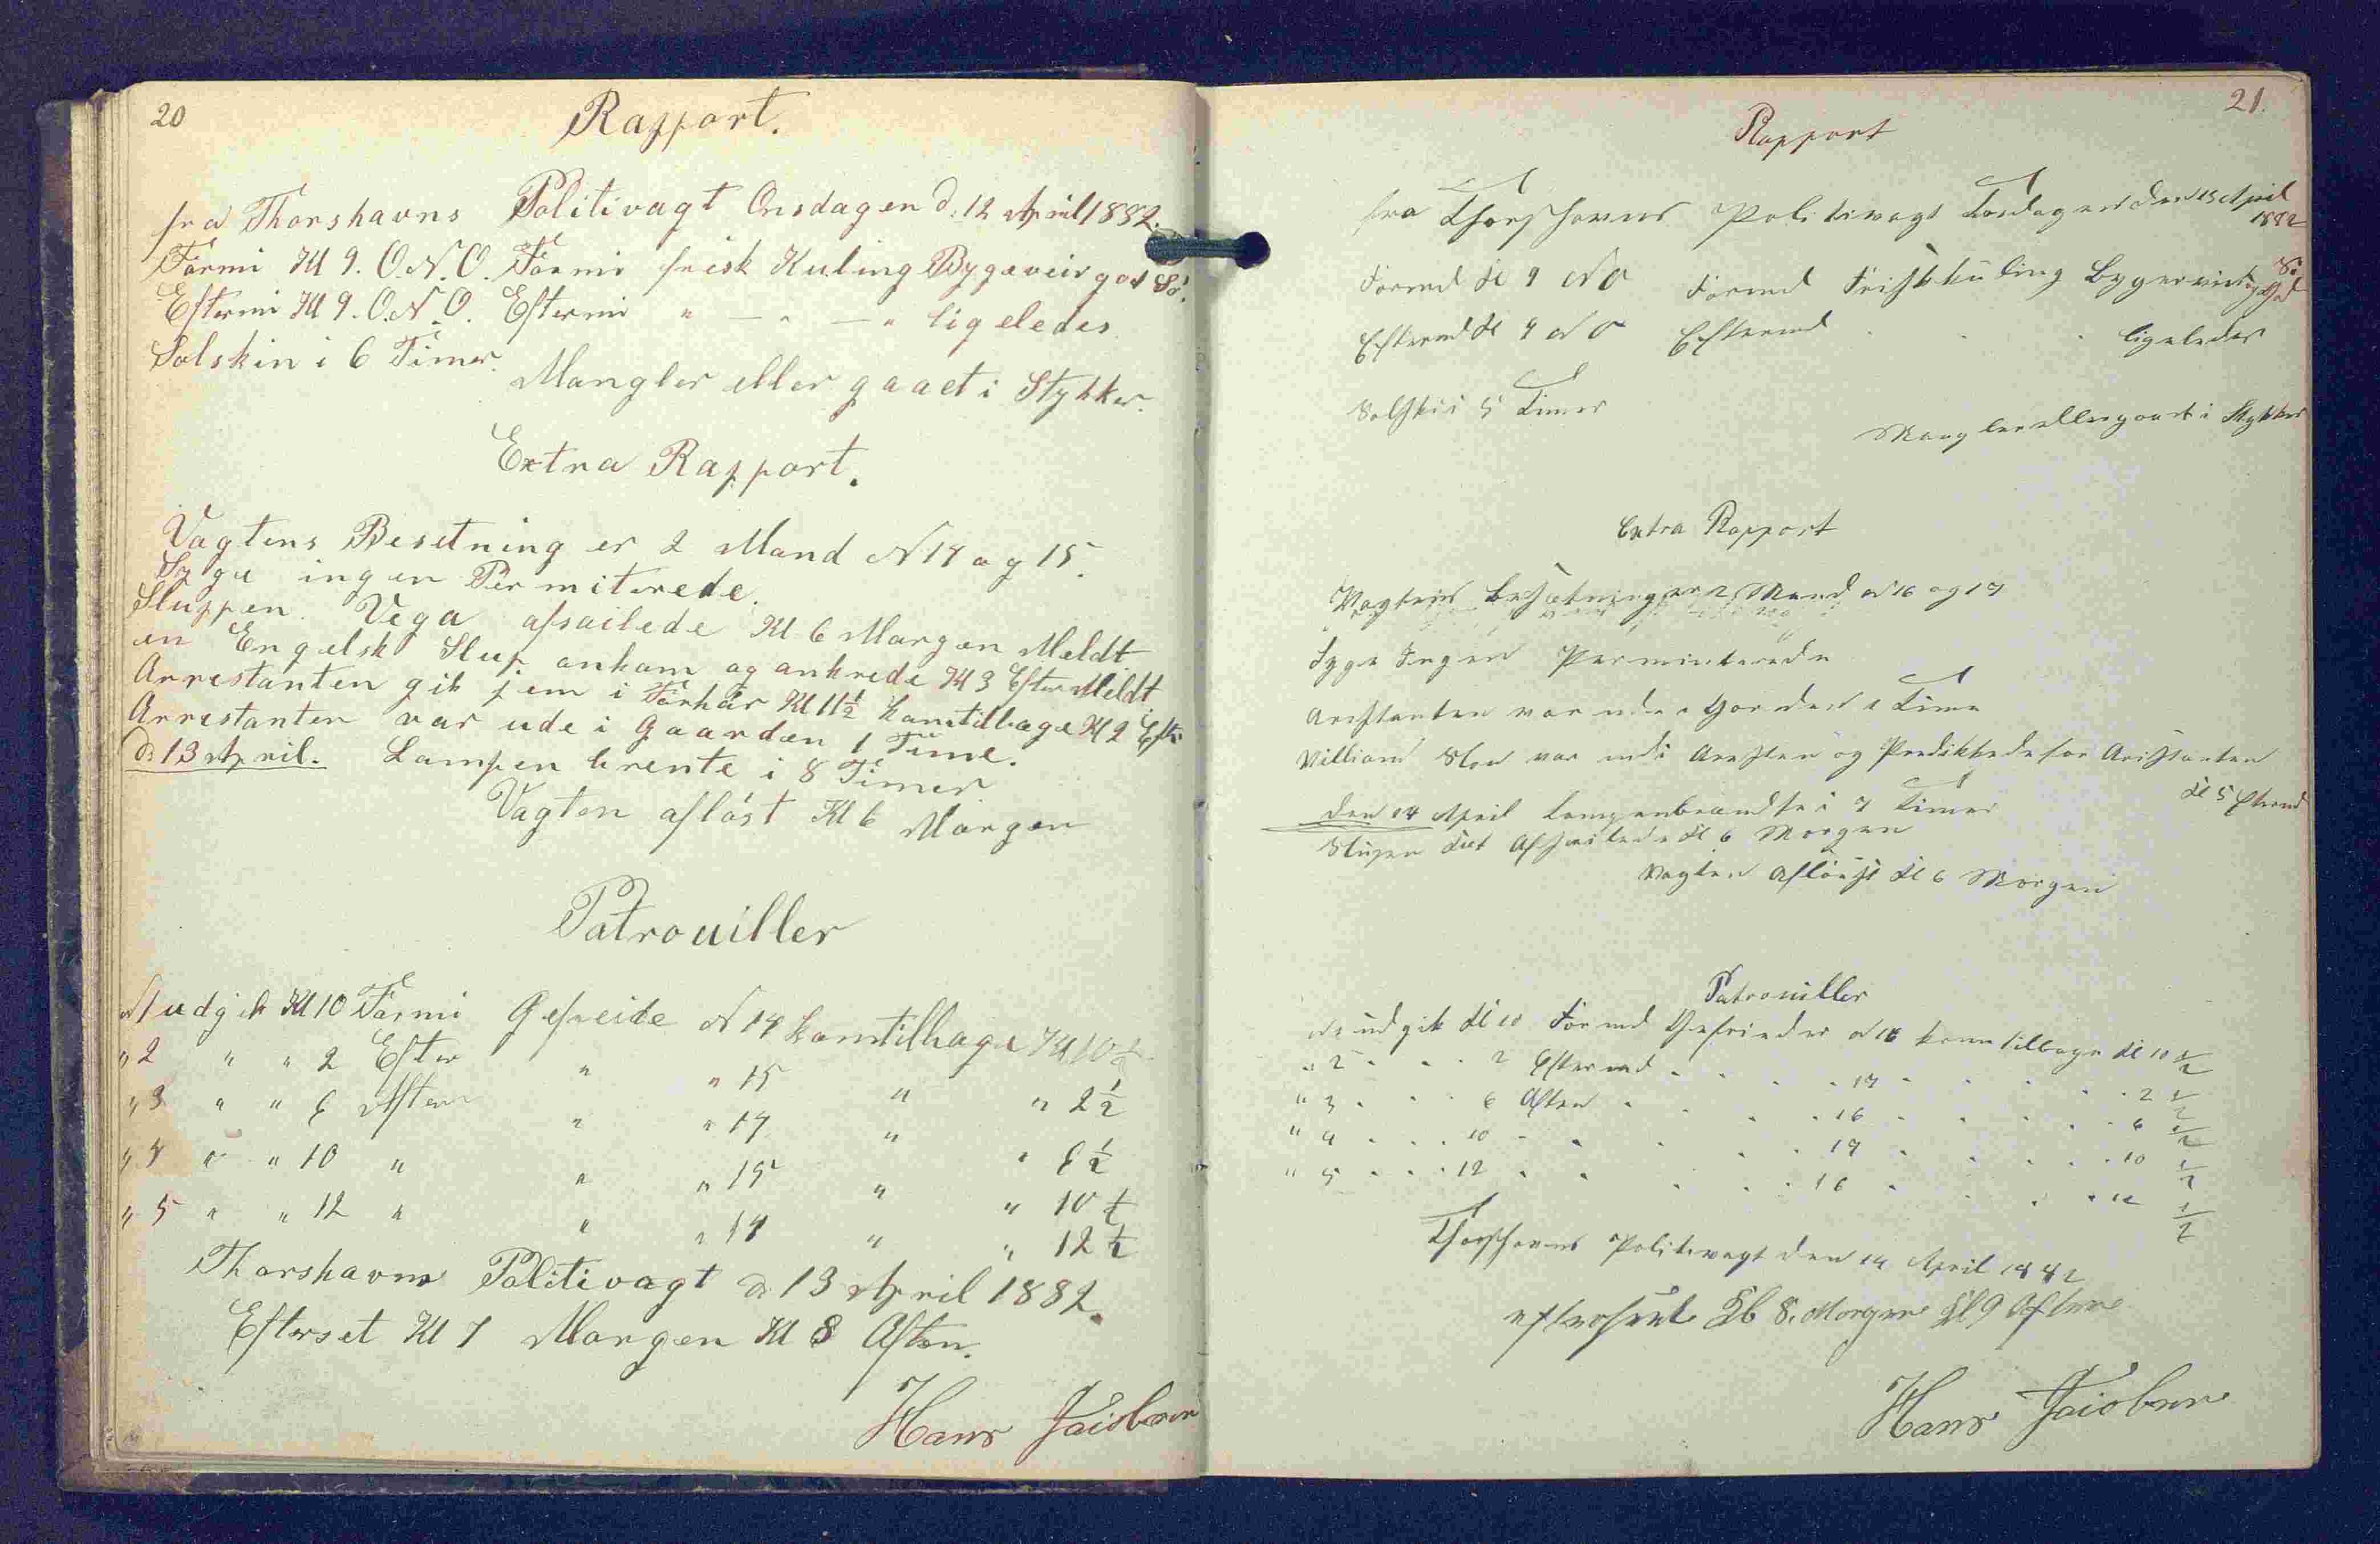 20
Rapport.
fra Thorshavns Politivagt Onsdagen d: 12 April 1882.
Formi Kl 9. O.N.O. Formi frisk Kuling Bygeveir god Sö.
Eftermi Kl 9. O.N.O. Eftermi " — " — " ligeledes
Solskin i 6 Timer.
Mangler eller gaaet i Stykker.
Extra Rapport.
Vagtens Besetning er 2 Mand N 14 og 15.
Syge ingen Permiterede.
Sluppen Vega afsailede Kl 6 Morgen Meldt
en Engelsk Slup ankom og ankrede Kl 3 Efter Meldt
Arrestanten gik frem i Forhör Kl 11½ kom tilbage Kl 2 Eft
Arrestanten var ude i Gaarden 1 Time.
d: 13 April. Lampen brente i 8 Timer
Vagten aflöst Kl 6 Morgen
Patrouiller
N 1 udgik Kl 10 Formi Gefreide N 14 kom tilbage Kl 10½
" 2 " " 2 Efter " " 15 " " 2½
" 3 " " 6 Aften " " 14 " " 6½
" 4 " " 10 " " " 15 " " 10½
" 5 " " 12 " " " 14 " " 12½
Thorshavns Politivagt d: 13 April 1882.
Efterset Kl 7 Morgen Kl 8 Aften.
Hans Jacobsen
21.
Rapport
fra Thorshavns Politivagt Torsdagen den 13 April
1882
Formd Kl 9 NO Formd Frisk kuling Bygeveir god Sö
Eftermd Kl 9 NO Eftermd " " ligeledes
Solski i 5 Timer
Mangler eller gaaet i Stykker
Extra Rapport
Vagtens besætning er 2 Mand N 16 og 17
Syge Ingen Perminterede
Arestanten var ude i Gorden 1 Time
Villiam Slon var inde i Aresten og Predikkede for Aristanten
Kl 5 Eftermd
den 14 April Lampen brendte i 7 Timer
Slupen Afseilede Kl 6 Morgen
Vagten Aflöist Kl 6 Morgen
Patrouiller
N 1 udgik Kl 10 Formd Gefreider N 16 kom tilbage Kl 10½
" 2 " " 2 Eftermd " " 17 " " 2½
" 3 " " 6 Aften " " 16 " " 6½
" 4 " " 10 " " " 17 " " 10½
" 5 " " 12 " " " 16 " " 12½
Thorshavns Politivagt den 14 April 1882
efterseet Kl 8. Morgen Kl 9 Aften
Hans Jacobsen